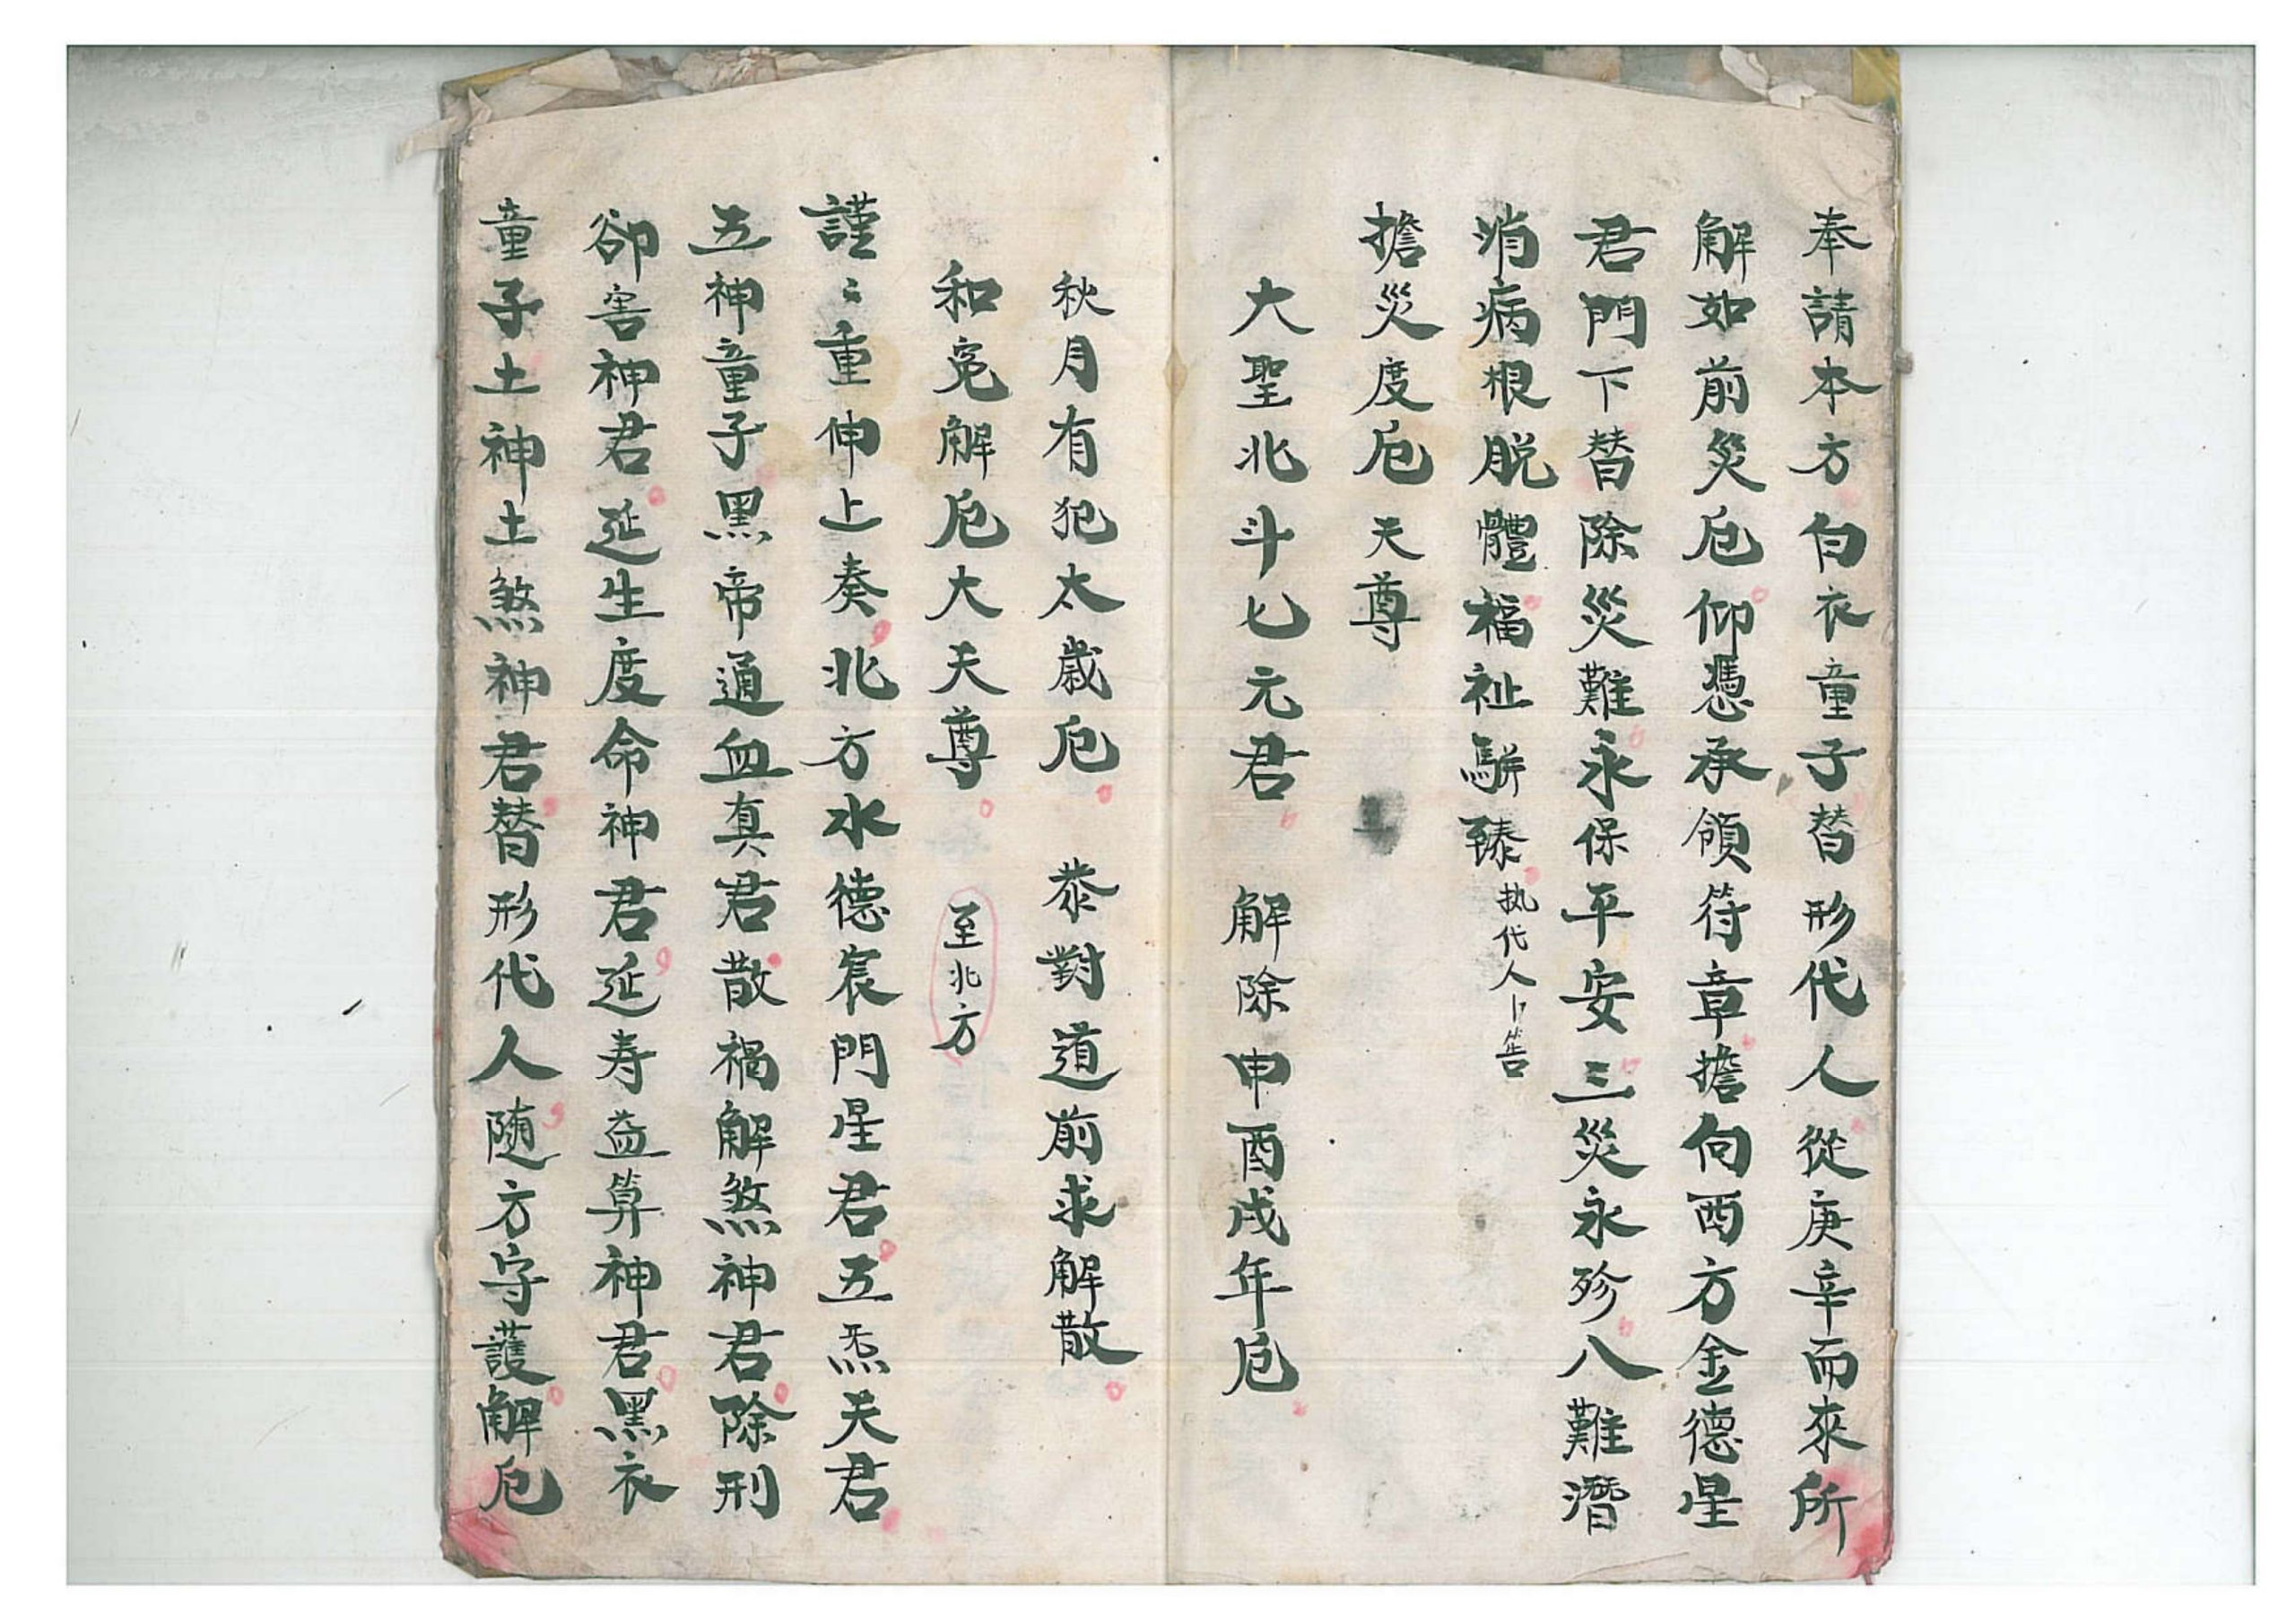 奉請本方白衣童子替形代人從庚辛而來所
解如前災厄仰憑承領符章擔向西方金德星
君門下替除災難永保平安三災永殄八難潛
消病根脱體福祉駢臻执代人卜告
擔災度厄天尊
大聖北斗七元君 解除申酉戌年厄
秋月有犯太歲厄 恭對道前求解散
和冤解厄大天尊 至北方
謹〻重伸上奏北方水德宸門星君五炁天君
五神童子黑帝通血真君散禍解煞神君除刑
卻害神君延生度命神君延寿益算神君黑衣
童子土神土煞神君替形代人随方守護解厄